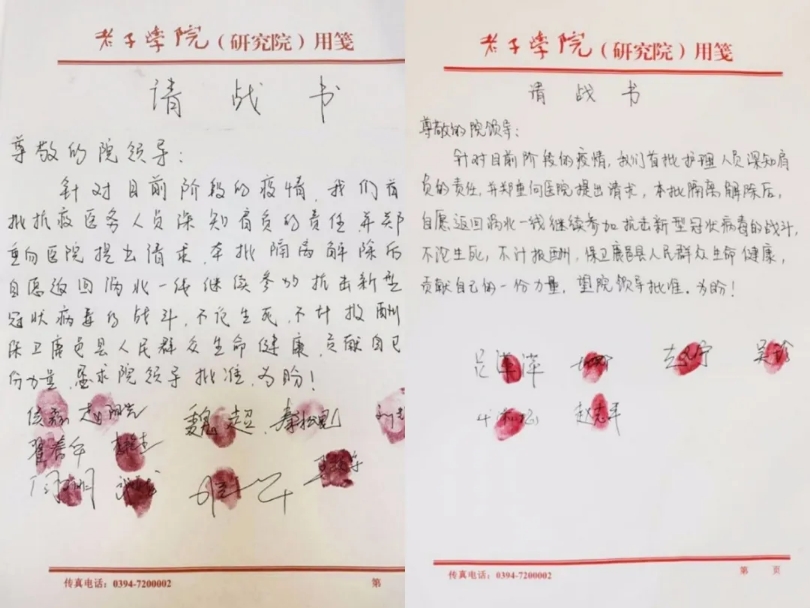 老子学院（研究院）用笺
请战书
尊敬的院领导：
针对目前阶段的疫情，我们首
批抗疫医务人员深知肩负的责任并郑
重向医院提出请求，本批隔离解除后
自愿返回涡北一线继续参加抗击新型
冠状病毒的战斗，不论生死，不计报酬
保卫鹿邑县人民群众生命健康，贡献自己
份力量，恳求院领导批准，为盼！
魏超
传真电话：0394-7200002
第
老子学院（研究院）用笺
请战书
尊敬的院领导：
针对目前阶段的疫情，我们首批护理人员深知肩
负的责任，并郑重向医院提出请求，本批隔离解除后，
自愿返回涡北一线继续参加抗击新型冠状病毒的战斗，
不论生死，不计报酬，保卫鹿邑县人民群众生命健康，
贡献自己的一份力量，望院领导批准，为盼！
传真电话：0394-7200002
第 页